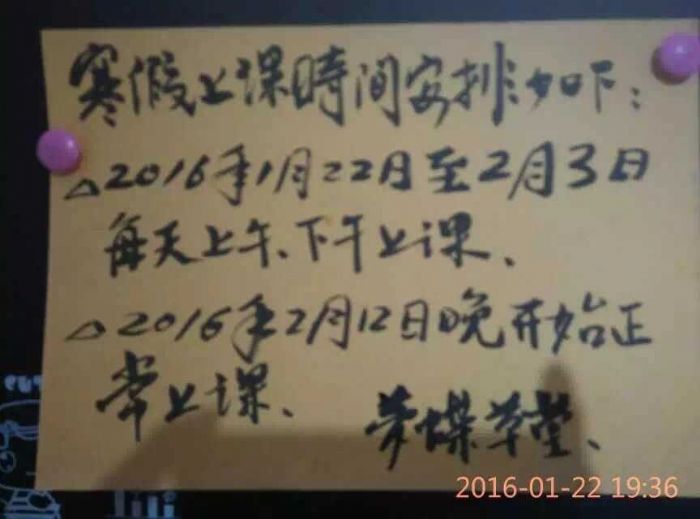 寒假上课時间安排如下：
△2016年1月22日至2月3日
每天上午、下午上课、
△2016年2月12日晚开始正
常上课、
梦蝶草堂、
2016-01-22 19:36